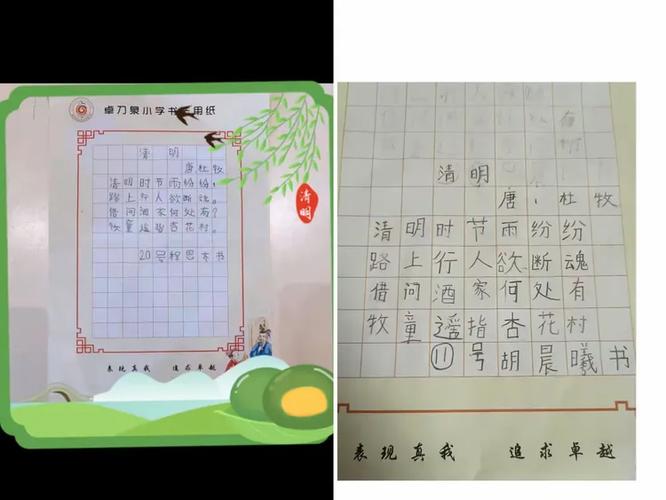 卓刀泉小学书法用纸
清明
唐杜牧
清明时节雨纷纷,
路上行人欲断魂。
借问酒家何处有?
牧童遥指杏花村。
20号程思本书
表现真我 追求卓越
清明
清明
唐、杜牧
清明时节雨纷纷
路上行人欲断魂
借问酒家何处有
牧童遥指杏花村
⑪号胡晨曦书
表现真我 追求卓越